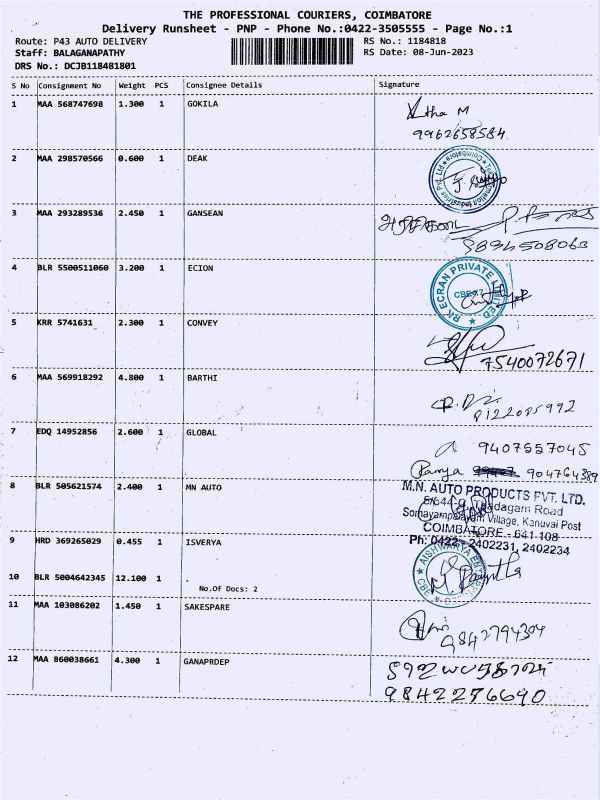 THE PROFESSIONAL COURIERS, COIMBATORE
Delivery Runsheet - PNP - Phone No.:0422-3505555 - Page No.:1
Route: P43 AUTO DELIVERY
RS No.: 1184818
Staff: BALAGANAPATHY
RS Date: 08-Jun-2023
DRS No.: DCJB118481801
S No Consignment No Weight PCS Consignee Details Signature
1 MAA 568747698 1.300 1 GOKILA
9962658584
2 MAA 298570566 0.600 1 DEAK
3 MAA 293289536 2.450 1 GANSEAN
9894508063
4 BLR 5500511060 3.200 1 ECION
RK ECRAN PRIVATE LIMITED
5 KRR 5741631 2.300 1 CONVEY
7540072671
6 MAA 569918292 4.800 1 BARTHI
7 EDQ 14952856 2.600 1 GLOBAL
9407557045
Ramya 904764389
8 BLR 505621574 2.400 1 MN AUTO
M.N. AUTO PRODUCTS PVT. LTD.
Thadagam Road
Somayampalayam Village, Kanuvai Post
COIMBATORE - 641 108
Ph: 0422 - 2402231, 2402234
9 HRD 369265029 0.455 1 ISVERYA
10 BLR 5004642345 12.100 1 .
No.Of Docs: 2
11 MAA 103086202 1.450 1 SAKESPARE
9842794304
12 MAA 860038661 4.300 1 GANAPRDEP
9842276690